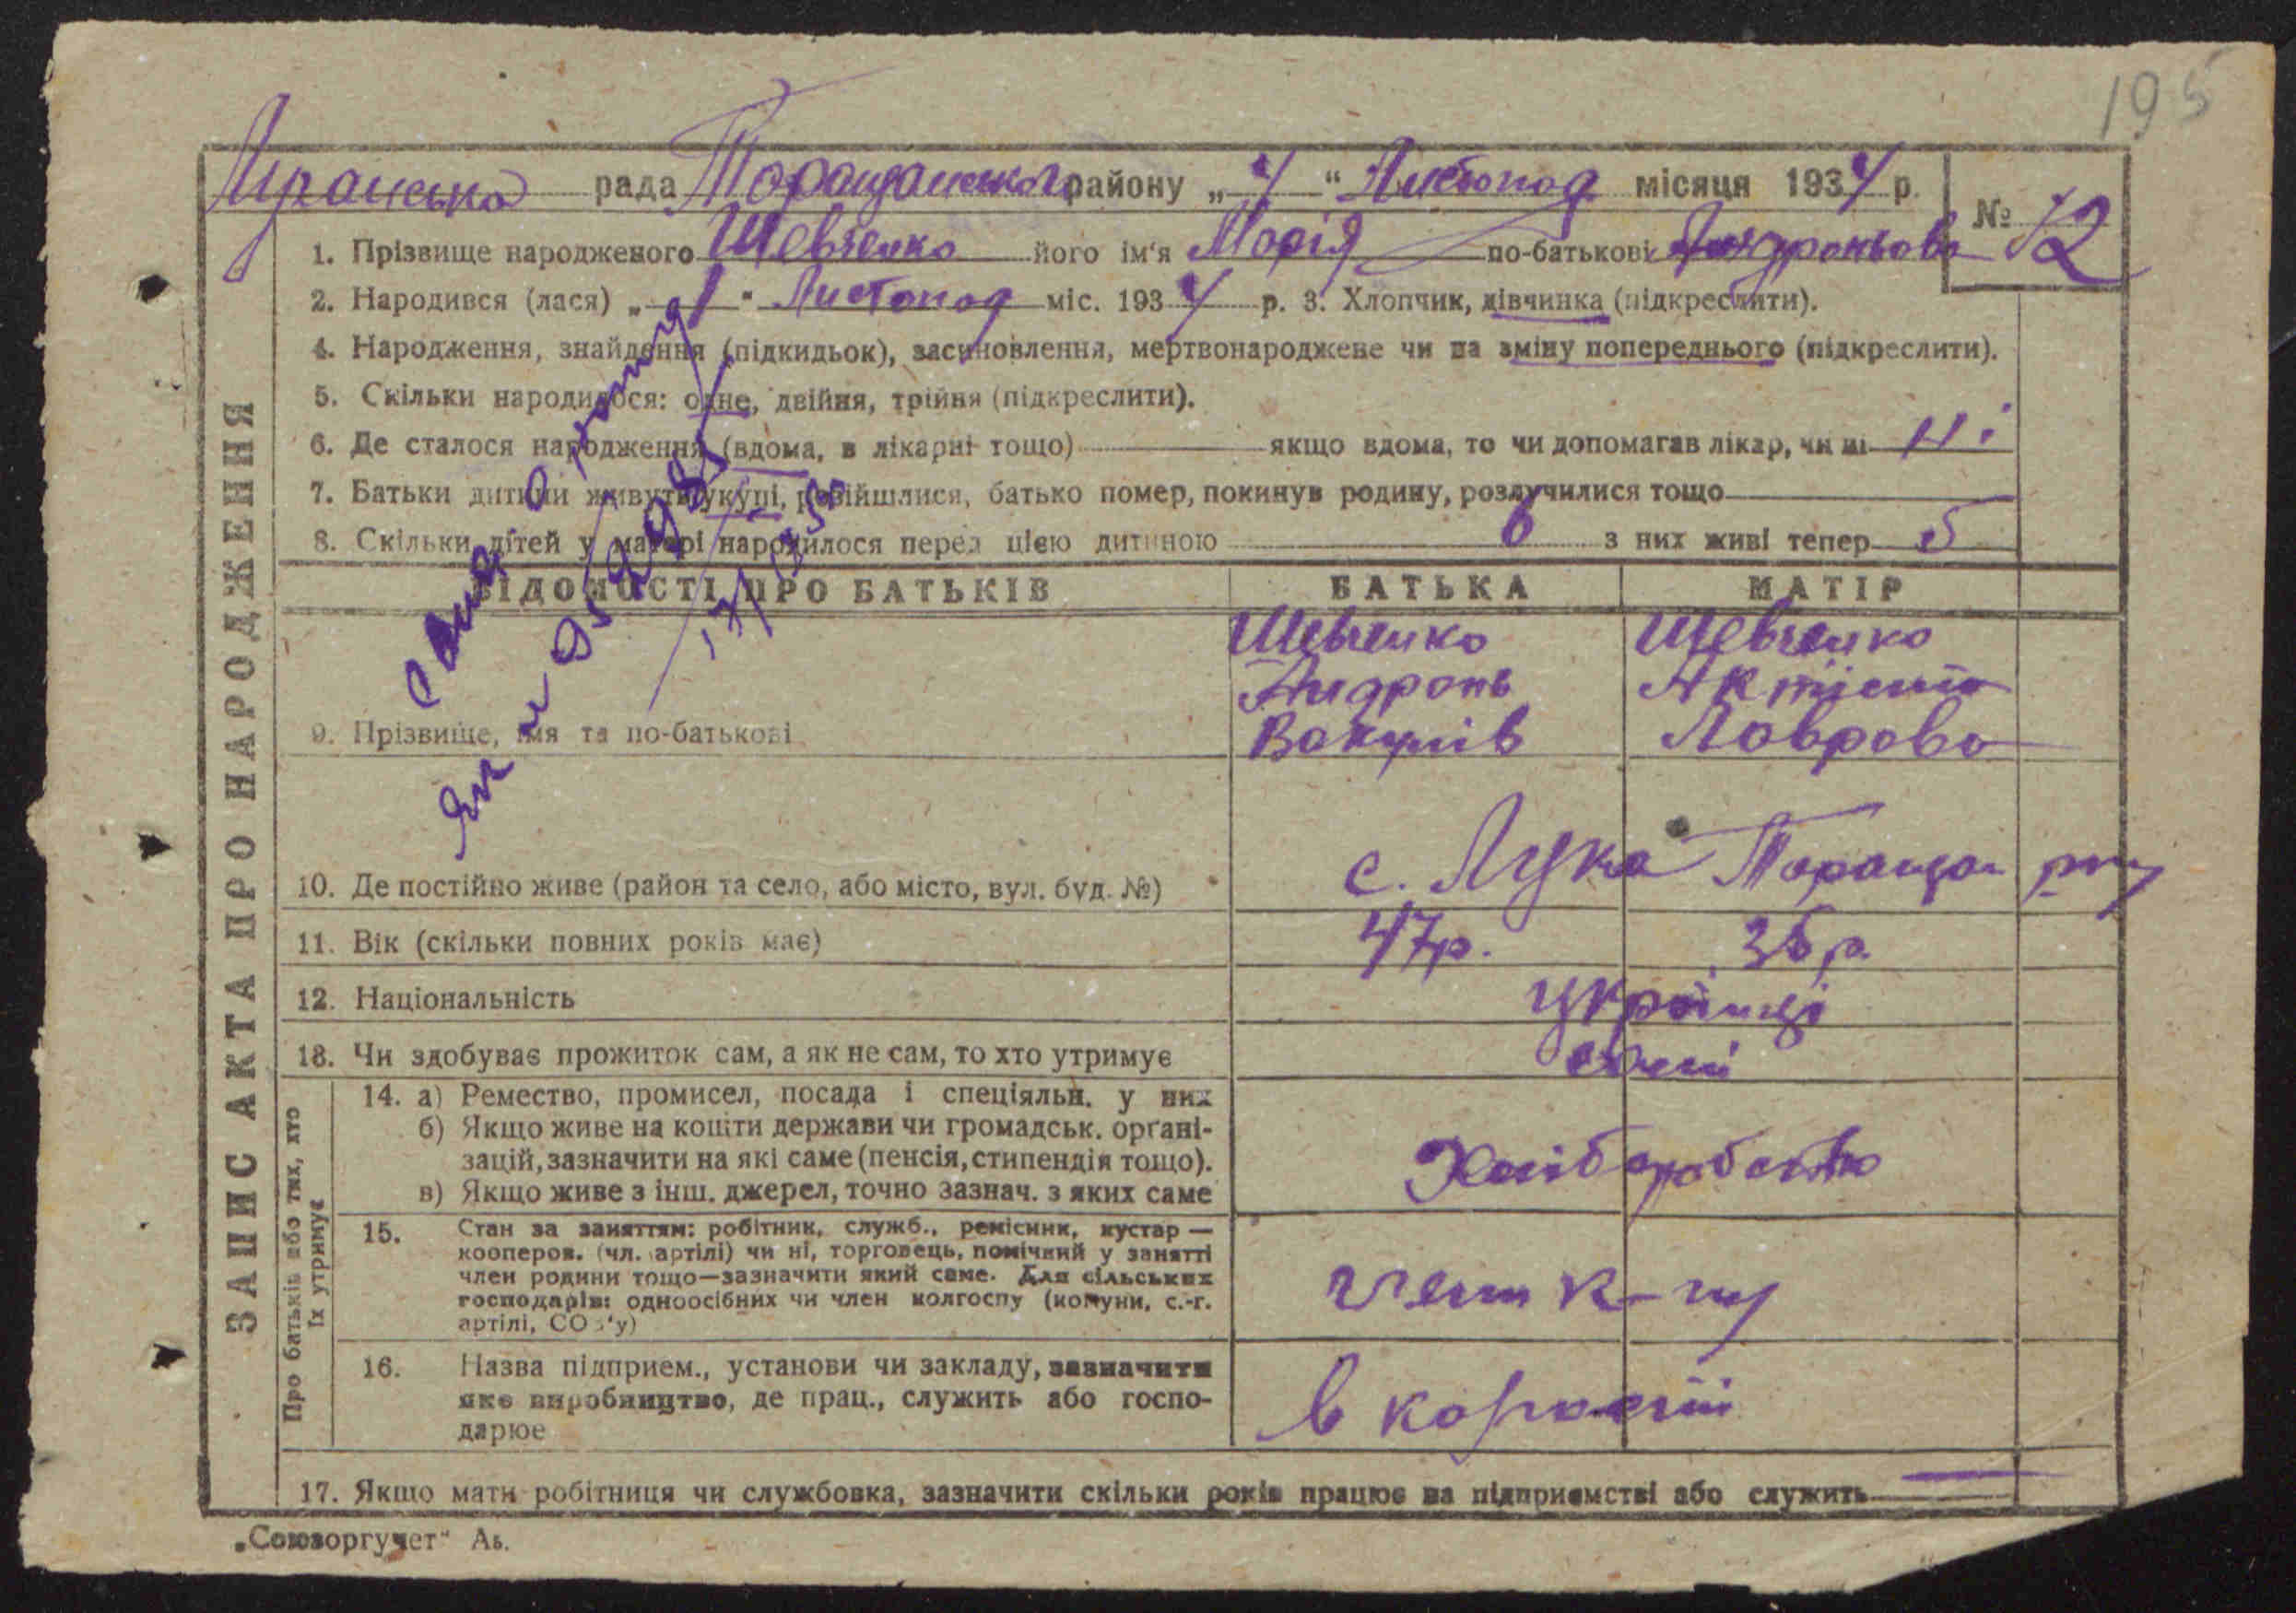 195
рада Таращанського району „4“ Листопад місяця 1934 р.
№ 72
1. Прізвище народженого Шевченко його ім'я Марія по-батькові Андроньова
2. Народився (лася) „1“ Листопад міс. 1934 р. 3. Хлопчик, дівчинка (підкреслити).
4. Народження, знайдення (підкидьок), засиновлення, мертвонароджене чи на зміну попереднього (підкреслити).
5. Скільки народилося: одне, двійня, трійня (підкреслити).
6. Де сталося народження (вдома, в лікарні тощо) якщо вдома, то чи допомагав лікар, чи ні ні
7. Батьки дитини живуть укупі, розійшлися, батько помер, покинув родину, розлучилися тощо
8. Скільки дітей у матері народилося перед цією дитиною 6 з них живі тепер 5
ВІДОМОСТІ ПРО БАТЬКІВ БАТЬКА МАТІР
Шевченко Шевченко
Андронь
9. Прізвище, імя та по-батькові Вакулів Лаврова
10. Де постійно живе (район та село, або місто, вул. буд. №) с. Лука Таращан. р-ну
11. Вік (скільки повних років має) 47р. 36 р.
12. Національність українці
13. Чи здобуває прожиток сам, а як не сам, то хто утримує самі
14. а) Ремество, промисел, посада і спеціяльн. у них
б) Якщо живе на кошти держави чи громадськ. органі-
зацій, зазначити на які саме (пенсія, стипендія тощо).
в) Якщо живе з інш. джерел, точно зазнач. з яких саме
Хліборобство
15. Стан за заняттям: робітник, служб., ремісник, кустар —
кооперов. (чл. артілі) чи ні, торговець, помічний у занятті
член родини тощо—зазначити який саме. Для сільських
господарів: одноосібних чи член колгоспу (комуни, с.-г.
артілі, СОЗ'у)
член к-пу
16. Назва підприєм., установи чи закладу, зазначити
яке виробництво, де прац., служить або госпо-
дарює
в
17. Якщо мати робітниця чи службовка, зазначити скільки років працює на підприємстві або служить
ЗАПИС АКТА ПРО НАРОДЖЕННЯ
Про батьків або тих, хто
їх утримує
„Союзоргучет“ Аь.